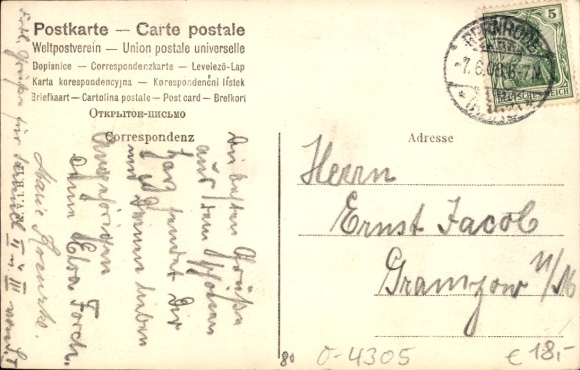 Postkarte — Carte postale
Weltpostverein — Union postale universelle
Dopisnice - Correspondenzkarte - Levelező-Lap
Karta korespondencyjna - Korespondenčni listek
Briefkaart - Cartolina postale - Post card - Brefkort
Открытое-письмо
Correspondenz
Die besten Grüße
aus dem schönen
Harz sendet Dir
und Deinen lieben
Angehörigen
Deine Elsa
Adresse
Herrn
Ernst Jacob
Gramzow U/M
5
DEUTSCHES REICH
7.6.08.6-7N
80
0-4305
€ 18,-